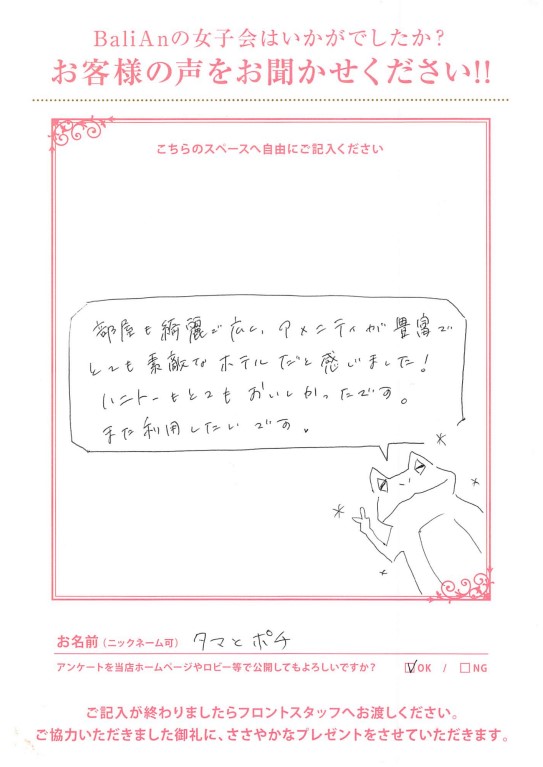 BaliAnの女子会はいかがでしたか?
お客様の声をお聞かせください!!
こちらのスペースへ自由にご記入ください
部屋も綺麗で広く、アメニティが豊富で
とても素敵なホテルだと感じました!
ハニトーもとてもおいしかったです。
また利用したいです。
お名前(ニックネーム可) タマとポチ
アンケートを当店ホームページやロビー等で公開してもよろしいですか? ☑OK / □NG
ご記入が終わりましたらフロントスタッフへお渡しください。
ご協力いただきました御礼に、ささやかなプレゼントをさせていただきます。